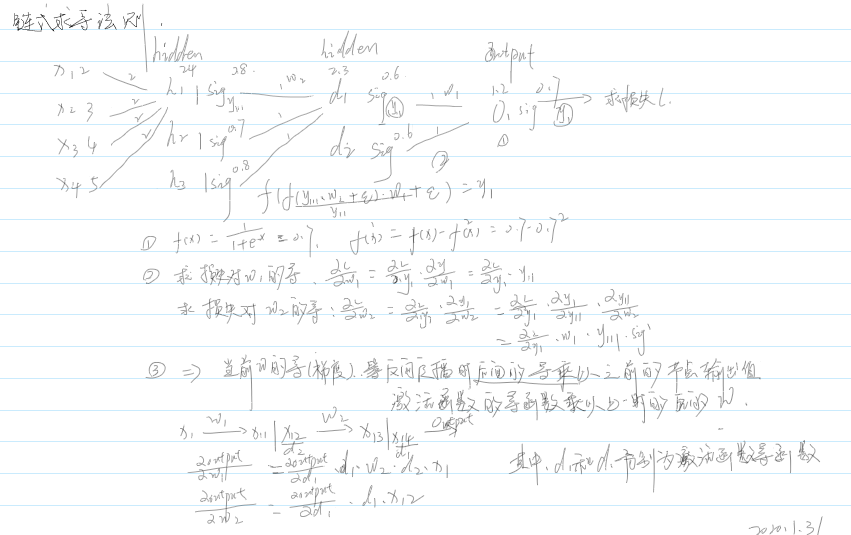 链式求导法则.
hidden hidden output
x₁ 2 2 h₁ 24 | sig 28. y₁₁₁ 1, w₂ d₁ 2.3 sig 0.6. y₁₁ 1, w₁ O₁ 1.2 sig 0.7 y₁ → 求损失L.
x₂ 3 2
x₃ 4 2 h₂ | sig 0.7 1 d₂ sig 0.6 1 ② ①
x₄ 5 2 h₃ | sig 0.8 1
f(f(y₁₁₁·w₂+ε)·w₁+ε) = y₁
y₁₁
① f(x) = 1/(1+eˣ) = 0.7, f'(x) = f(x) - f(x)² = 0.7-0.7²
② 求损失对w₁的导. ∂L/∂w₁ = ∂L/∂y₁ · ∂y/∂w₁ = ∂L/∂y₁ · y₁₁
求损失对w₂的导: ∂L/∂w₂ = ∂L/∂y₁ · ∂y₁/∂w₂ = ∂L/∂y₁ · ∂y₁/∂y₁₁ · ∂y₁₁/∂w₂
= ∂L/∂y₁ · w₁ · y₁₁₁ · sig'
③ ⇒ 当前w的导(梯度).等反向传播时后面的导乘以之前的节点输出值
激活函数的导函数乘以的后的w.
x₁ w₁→ x₁₁ | x₁₂ d₂ w₂→ x₁₃ | x₁₄ d₁ output→
∂output/∂w₁ = ∂output/∂d₁ · d₁·w₂·d₂·x₁
∂output/∂w₂ = ∂output/∂d₁ · d₁·x₁₂
其中,d₁和d₁分别为激活函数导函数
2020.1.31